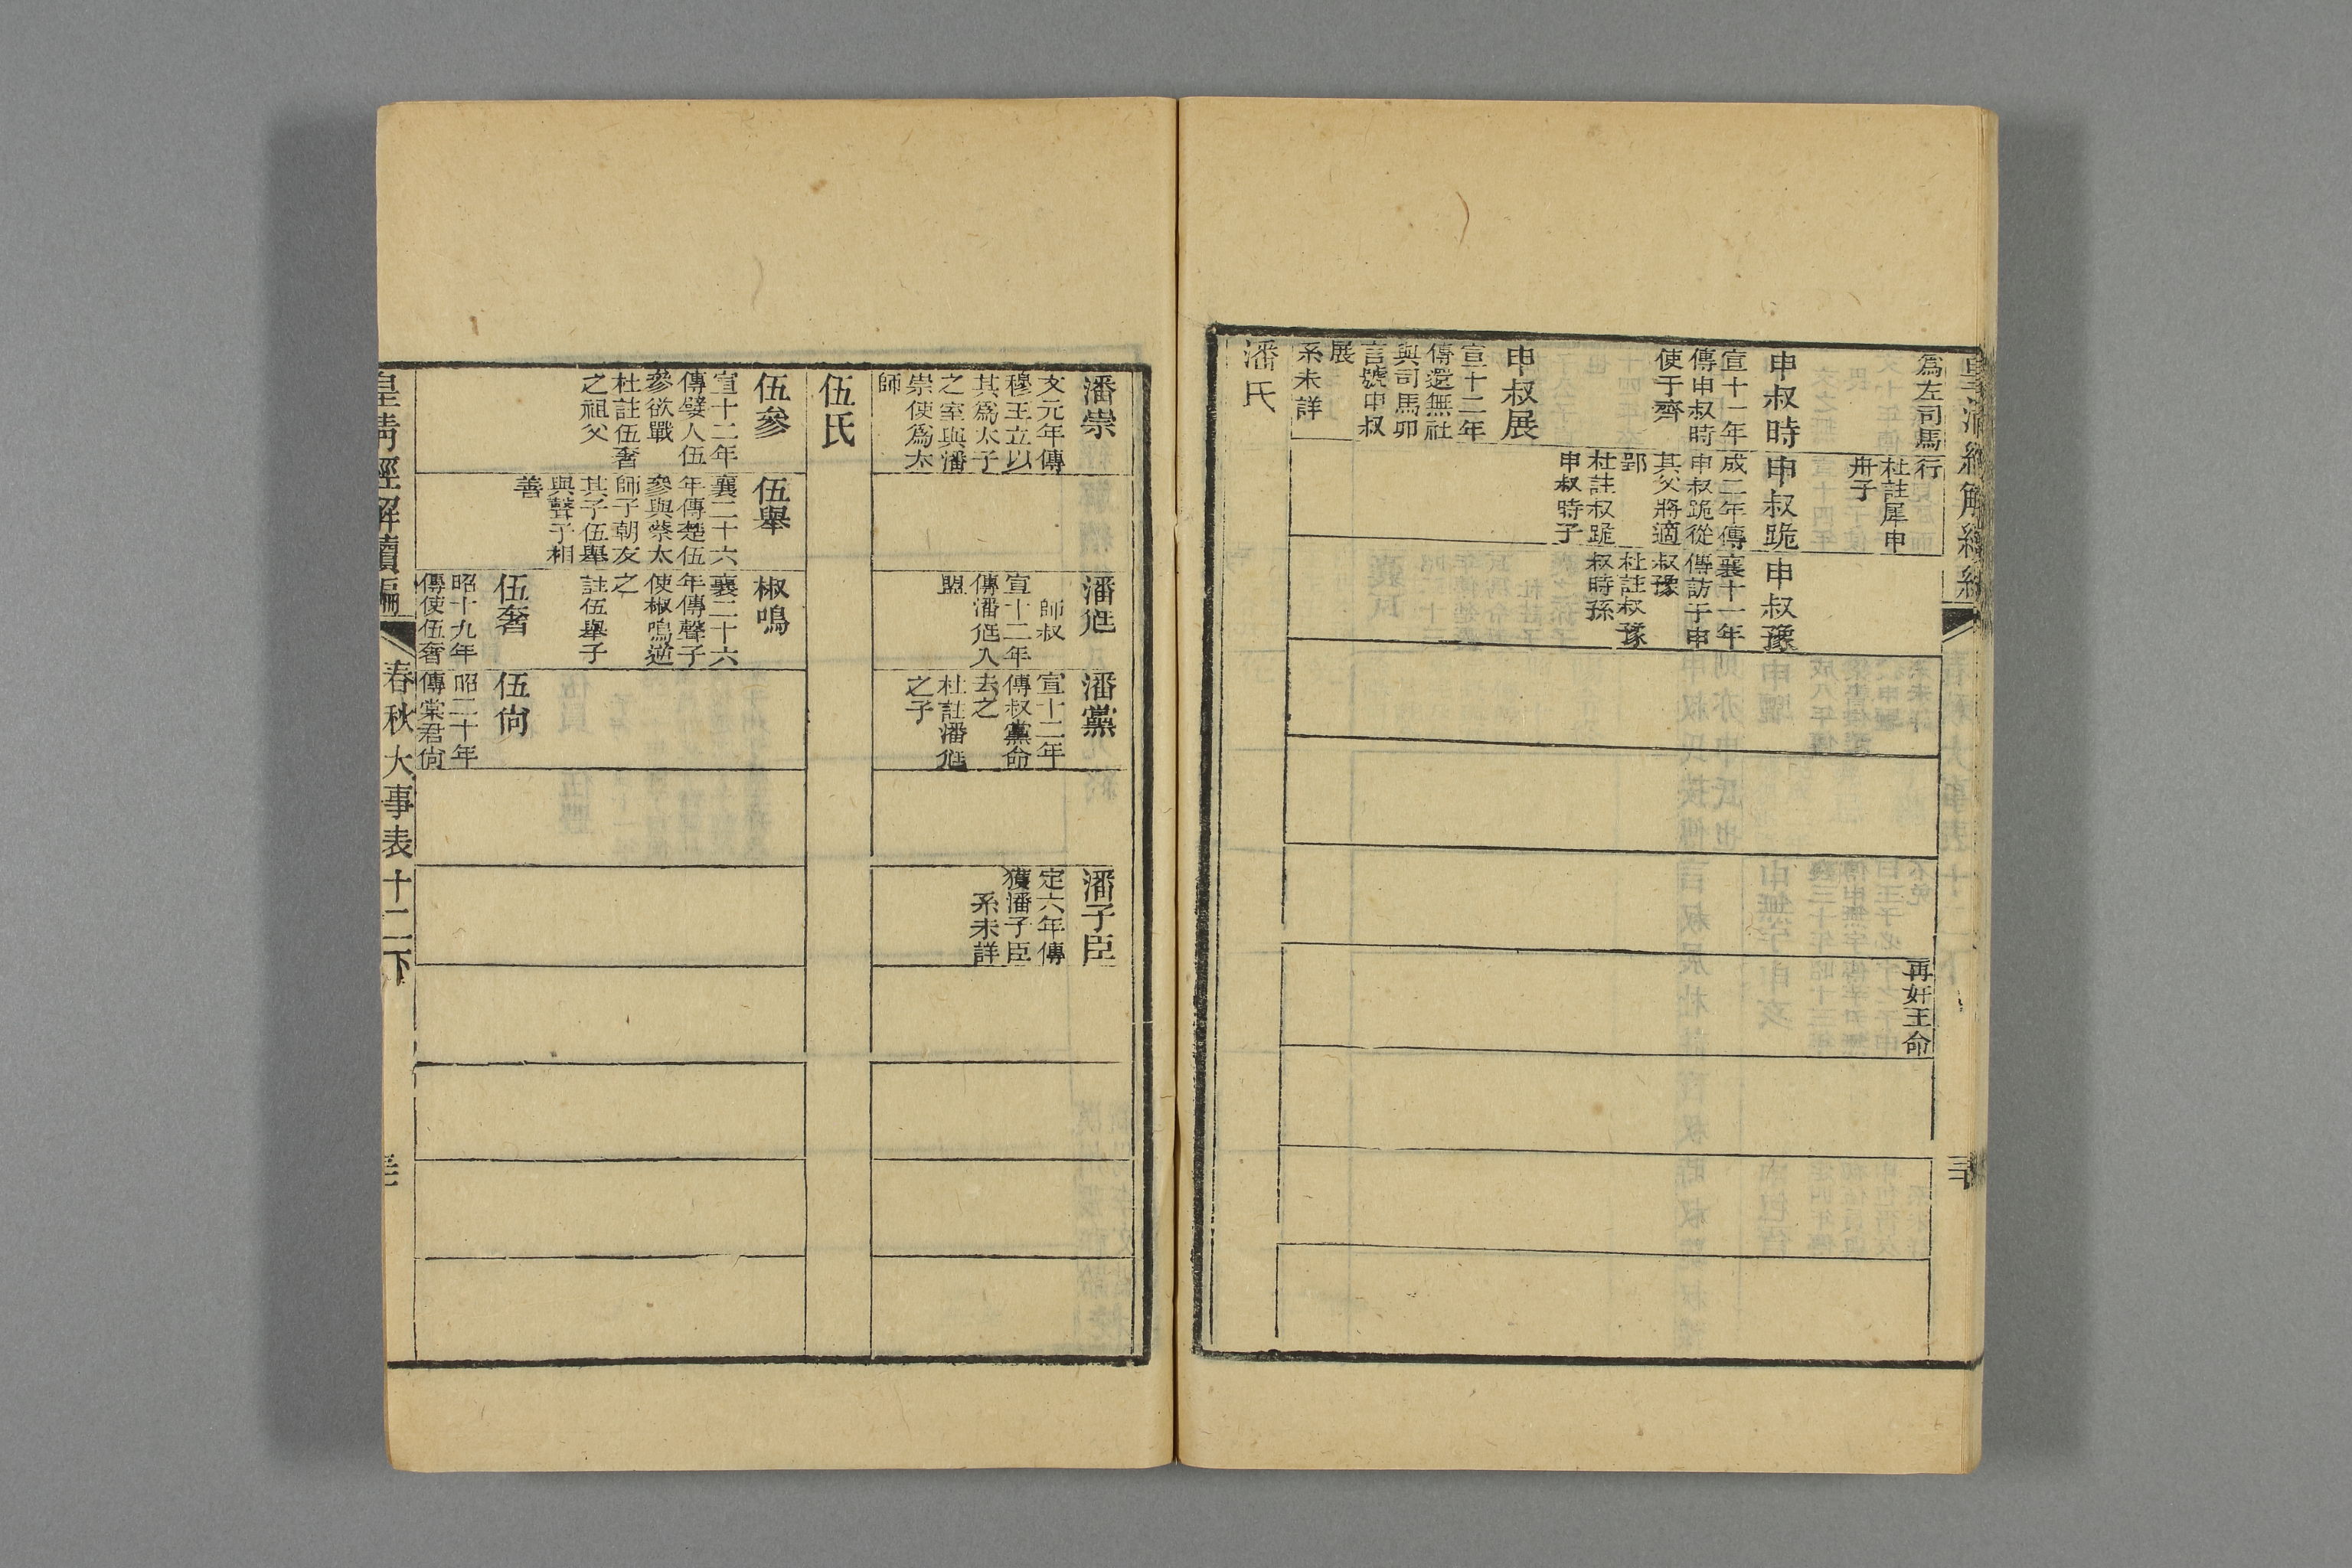 爲左司馬
行
杜註犀申
舟子
再奸王命
申叔時
宣十一年
傳申叔時
使于齊
申叔跪
成二年傳
申叔跪從
其父將適
郢
杜註叔跪
申叔時子
申叔豫
襄十一年
傳訪于申
叔豫
杜註叔豫
叔時孫
申叔展
宣十二年
傳還無社
與司馬卯
言號申叔
展
系未詳
潘氏
潘崇
文元年傳
穆王立以
其爲太子
之室與潘
崇使爲太
師
潘尫
師叔
宣十二年
傳潘尫入
盟
潘黨
宣十二年
傳叔黨命
去之
杜註潘尫
之子
潘子臣
定六年傳
獲潘子臣
系未詳
伍氏
伍參
宣十二年
傳嬖人伍
參欲戰
杜註伍奢
之祖父
伍舉
襄二十六
年傳楚伍
參與蔡太
師子朝友
其子伍舉
與聲子相
善
椒鳴
襄二十六
年傳聲子
使椒鳴逆
之
註伍舉子
伍奢
昭十九年
傳使伍奢
伍尙
昭二十年
傳棠君尙
皇清經解續編
春秋大事表十二下